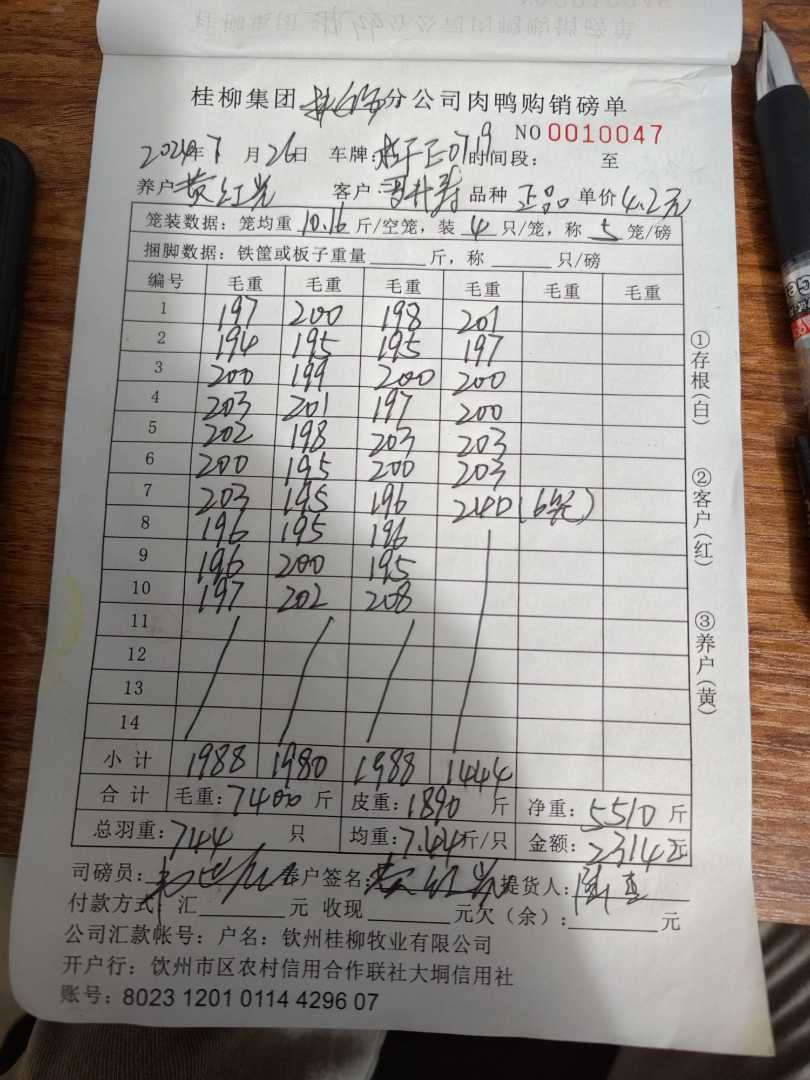 桂柳集团 分公司肉鸭购销磅单
NO 0010047
2024年7月26日 车牌: 0719 时间段: 至
养户 黄红光 客户: 品种 正品 单价 4.2元
笼装数据: 笼均重 10.16 斤/空笼, 装 4 只/笼, 称 5 笼/磅
捆脚数据: 铁筐或板子重量 斤, 称 只/磅
编号 毛重 毛重 毛重 毛重 毛重 毛重
1 197 200 198 201
2 194 195 195 197
3 200 199 200 200
4 203 201 197 200
5 202 198 203 203
6 200 195 200 203
7 203 195 196 240 (6笼)
8 196 195 196
9 196 200 195
10 197 202 208
11
12
13
14
小计 1988 1980 1988 1444
合计 毛重: 7400 斤 皮重: 1890 斤 净重: 5510 斤
总羽重: 744 只 均重: 7.44斤/只 金额: 2314元
司磅员: 养户签名: 黄红光 提货人:
付款方式: 汇 元 收现 元欠(余): 元
公司汇款帐号: 户名: 钦州桂柳牧业有限公司
开户行: 钦州市区农村信用合作联社大垌信用社
账号: 8023 1201 0114 4296 07
①存根(白)
②客户(红)
③养户(黄)